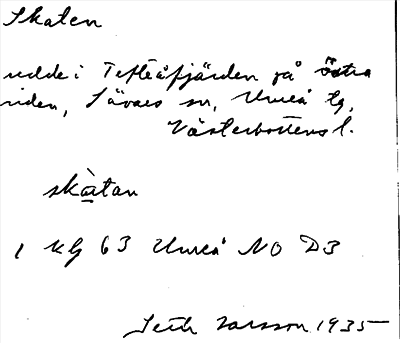 Skaten
udde i Tefteåfjärden på östra
siden, Sävars sn, Umeå tg,
Västerbottens l.
skàtan
1 Kbl 63 Umeå NO D3
Seth Larsson 1935